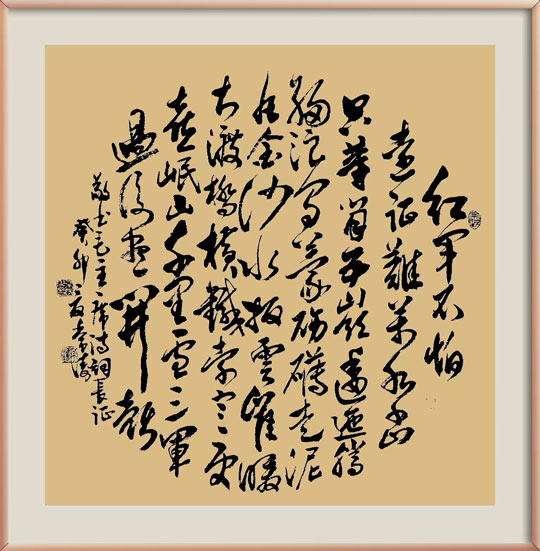 红军不怕
遠征難萬水千山
只等闲五嶺逶迤騰
細浪乌蒙磅礴走泥
丸金沙水拍雲崖暖
大渡橋橫鐵索寒更
喜岷山千里雪三軍
過後盡開顔
敬书毛主席诗詞長征
癸卯